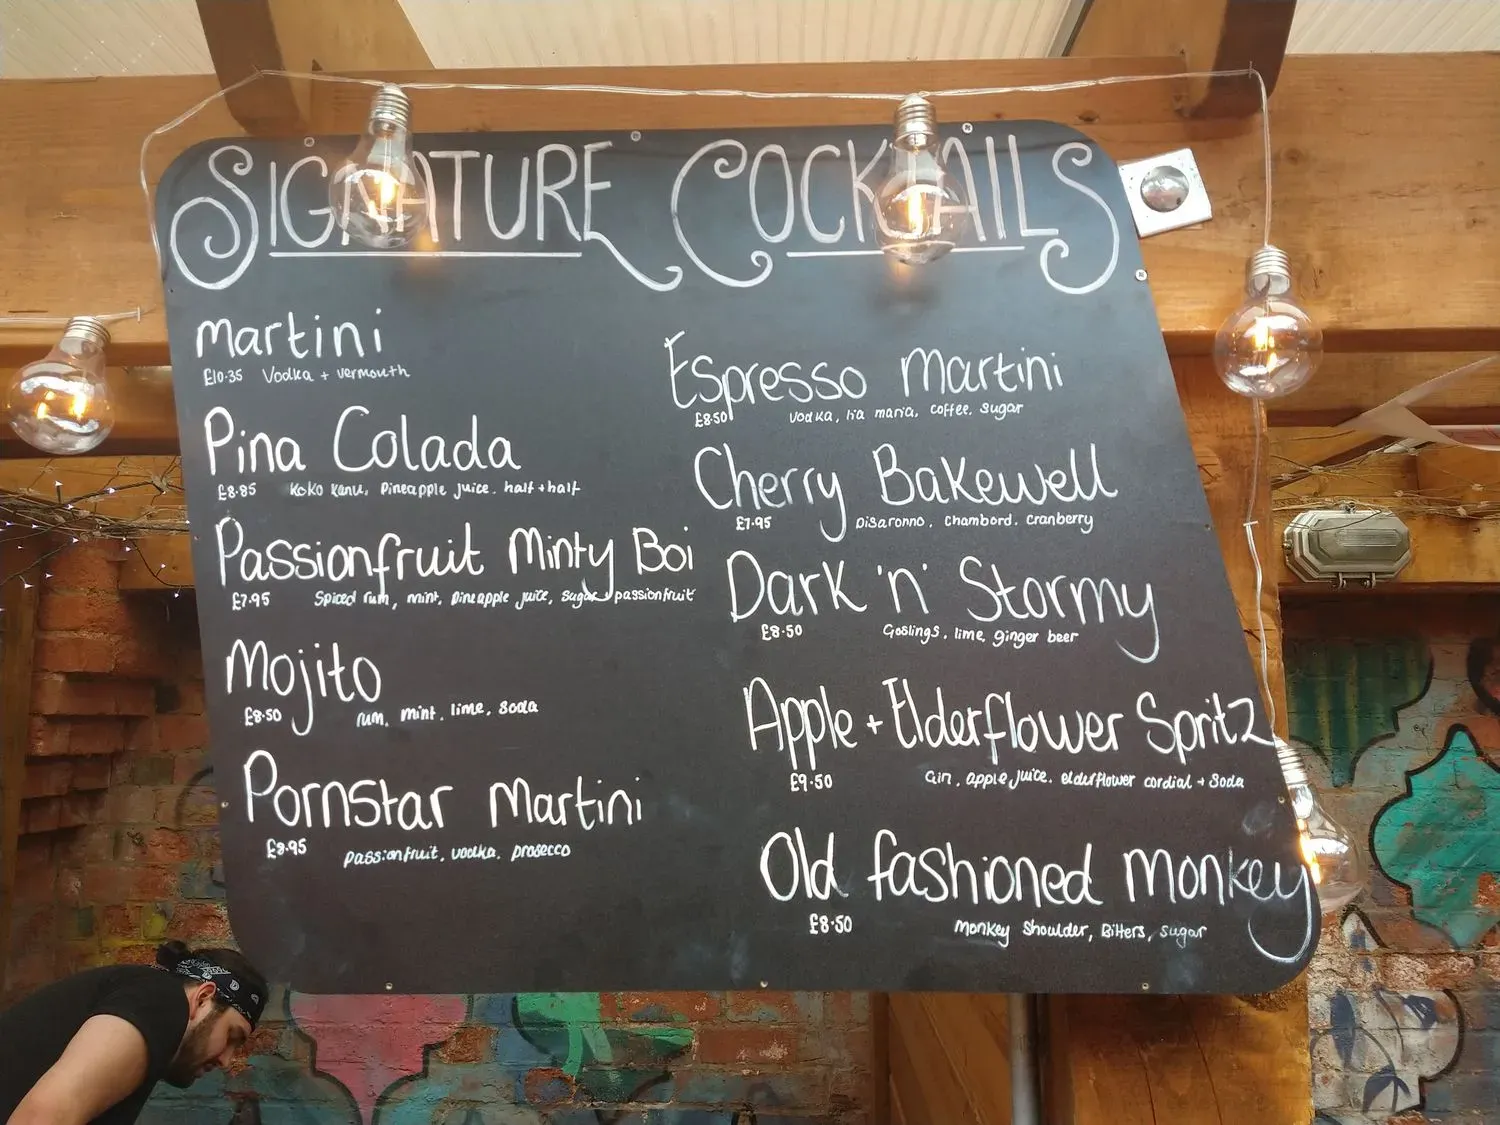 SIGNATURE COCKTAILS
Martini
£10.35 Vodka + vermouth
Pina Colada
£8.85 Koko Kanu, Pineapple juice. half + half
Passionfruit Minty Boi
£7.95 Spiced rum, mint, pineapple juice, sugar + passionfruit
Mojito
£8.50 rum, mint, lime, soda
Pornstar Martini
£8.95 passionfruit, vodka, prosecco
Espresso Martini
£8.50 vodka, tia maria, coffee, sugar
Cherry Bakewell
£7.95 Disaronno, Chambord, cranberry
Dark 'n' Stormy
£8.50 Goslings, lime, ginger beer
Apple + Elderflower Spritz
£9.50 Gin, apple juice, elderflower cordial + soda
Old fashioned Monkey
£8.50 Monkey Shoulder, Bitters, sugar